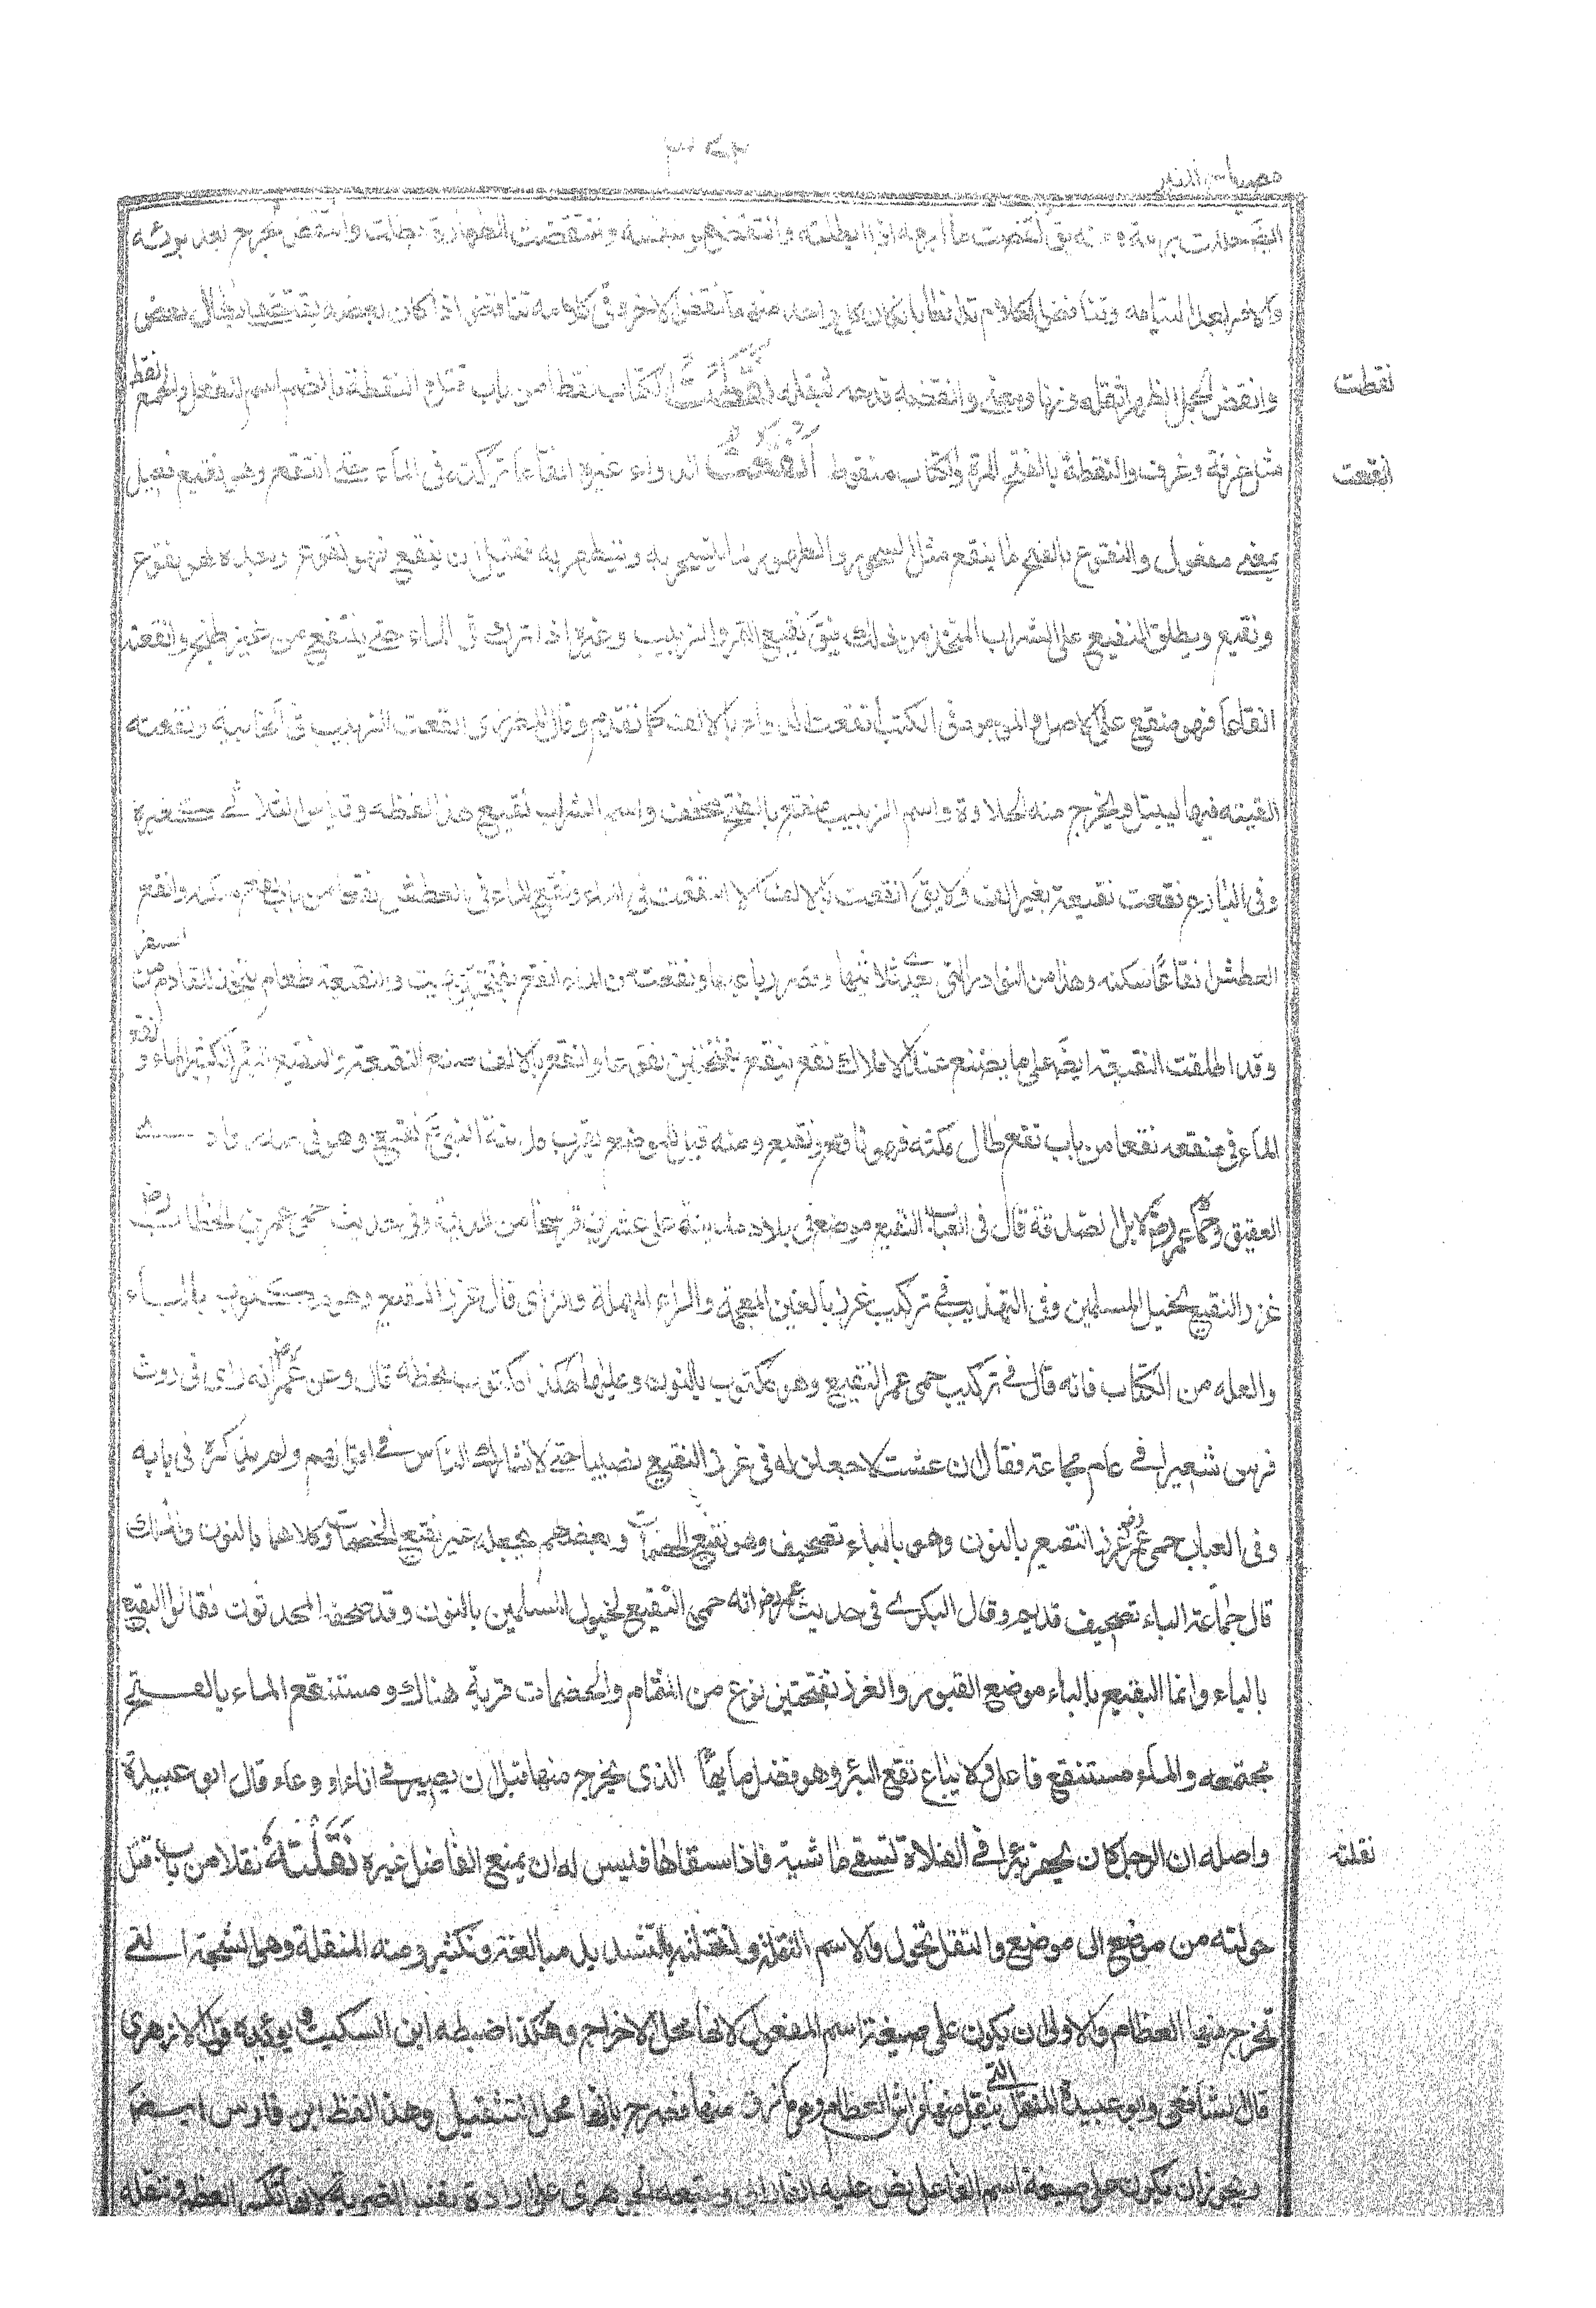 مصباح المنير
وانتقضت الطهارة بطلت وانتقض الجرح بعد برئه
والامر بعد التيامه وتناقض الكلام تدافعا كان كل واحد منهما نقض الاخر وفى كلامه تناقض اذا كان بعضه يقتضى ابطال بعض
وانقض الحمل الظهر اثقله وزنا ومعنى وانقضه فدحه ثقله نَقَطْتُ الكتاب نقطا من باب قتل والنقطة بالضم اسم للفعل والجمع نقط
نقطت
مثل غرفة وغرف والنقطة بالفتح المرة والكتاب منقوط أَنْقَعْتُ الدواء وغيره انقاعا تركته فى الماء حتى انتقع وهو نقيع فعيل
انقعت
بمعنى مفعول والنقوع بالفتح ما ينقع مثل السحور والطهور لما يتسحر به ويتطهر به فقيل ان ينقع فهو نقوع وبعده هو نقوع
ونقيع ويطلق النقيع على الشراب المتخذ من ذلك يق نقيع التمر والزبيب وغيره اذا ترك فى الماء حتى ينتقع من غير طبخ وانقعته
انقاعا فهو منقع على الاصل والموجود فى الكتب انقعت الدواء بالالف كما تقدم وقال المطرزى انقعت الزبيب فى الخابية ونقعته
القيته فيها ليبتل ويخرج منه الحلاوة واسم الزبيب منقع بالفتح مخفف واسم الشراب نقيع هذا لفظه وقياس الثلاثى كغيره
وفى البارع نقعت نقيعة بغير الف ولا يق انقعت بالالف فى الماء ونقع الماء فى العطش نقعا من باب وانقع
العطش انقاعا سكنه وهذا من النوادر التى ونقعت من الماء انقع بفتحتين رويت والنقيعة طعام يتخذ للقادم من السفر
وقد اطلقت النقيعة ايضا على ما يصنع عند الاملاك نقع ينقع بفتحتين نقوعا وانقع بالالف صنع النقيعة والنقيع البئر الكثير الماء و نقع
الماء فى منقعه نقعا من باب نفع طال مكثه فهو ناقع ونقيع ومنه قيل لموضع بقرب مدينة النبى نقيع وهو فى صدر واد
العقيق وحماه عمر رض لابل الصدقة قال فى العباب النقيع موضع فى بلاد مدينة على عشرين فرسخا من المدينة وفى حديث حمى عمر بن الخطاب رض
غرز النقيع لخيل المسلمين وفى التهذيب فى تركيب غرز بالغين المعجمة والراء المهملة والزاى قال غرز النقيع وهو مكتوب بالباء
والعله من الكتاب فانه قال فى تركيب حمى عمر النقيع وهو مكتوب بالنون وعليها هكذا مكتوب بخطه قال وعن عمر رض انه راى فى روث
فرس شعيرا فى عام مجاعة فقال ان عشت لاجعلن له فى غرز النقيع نصيبا حتى لا تشارك الناس فى اقواتهم ولم يذكره فى بابه
وفى العباب حمى عمر رض غرز النقيع بالنون وهو بالباء تصحيف وهو نقيع الخضمات وبعضهم يجعله غير نقيع الخضمات وكلاهما بالنون وكذلك
قال جماعة الباء تصحيف قديم وقال البكرى فى حديث عمر رض انه حمى النقيع لخيول المسلمين بالنون وقد صحف المحدثون فقالوا البقيع
بالباء وانما البقيع بالباء موضع القبور والغرز بفتحتين نوع من الثمام والخضمات قرية هناك ومستنقع الماء بالفتح
مجتمعه والماء مستنقع فاعل ولا يباع نقع البئر وهو فضل مايها الذى يخرج منها قبل ان يصير فى اناء او وعاء قال ابو عبيدة
واصله ان الرجل كان يحفر بئرا فى الفلاة لتسقى ماشية فاذا سقاها فليس له ان يمنع الفاضل غيره نَقَلْتُهُ نقلا من باب قتل
نقلته
حولته من موضع الى موضع وانتقل تحول والاسم النقلة ونقلته بالتشديد مبالغة وتكثير ومنه المنقلة وهى الشجة التى
تخرج منها العظام والاولى ان يكون على صيغة اسم المفعول لانها محل الاخراج وهكذا ضبطه ابن السكيت ويؤيده قول الازهرى
قال الشافعى وابو عبيدة المنقلة التى ينقل منها فراش العظام وهو ما رق منها فصرح بانها محل التنقيل وهذا لفظ ابن فارس ايضا
ويجوز ان يكون على صيغة اسم الفاعل نص عليه الفارابى وتبعه الجوهرى على ارادة نفس الضربة لانها تكسر العظم وتنقله